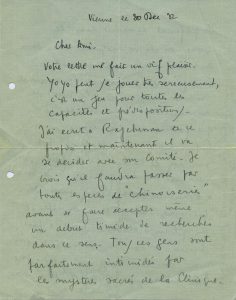 Vienne le 30 Dec 32
Cher Ami.
Votre lettre me fait un vif plaisir.
Yoyo peut se jouer très serieusement,
c'est un jeu pour toutes les
capacités et prédispositions.
J'ai ecrit a Rajchman a ce
propos et maintenant il va
se decider avec son Comité. Je
crois qu'il faudra passer par
toute especes de "chinoiseries"
avant de faire accepter même
un debut timide de recherches
dans ce sens. Tous ces gens sont
parfaitement intimidés par
les mystères sacrés de la Clinique.